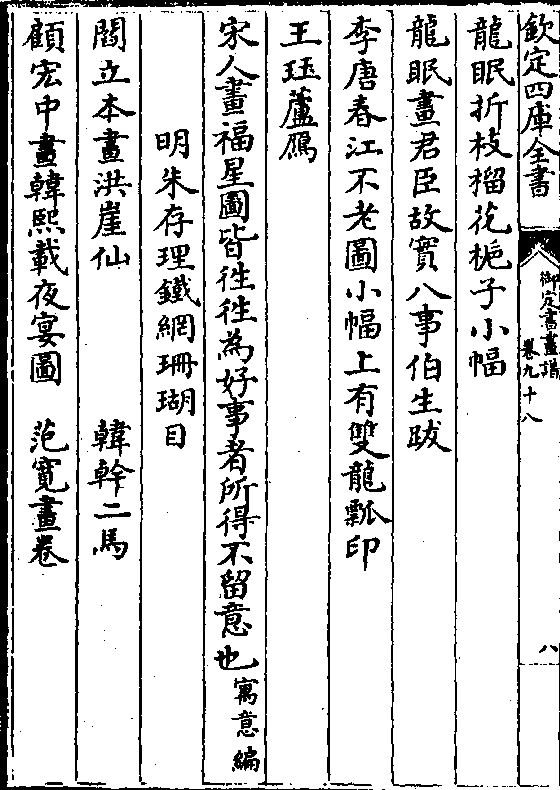 欽定四庫全書
御定書畫譜
卷九十八
八
龍眠折枝榴花梔子小幅
龍眠畫君臣故實八事伯生跋
李唐春江不老圖小幅上有雙龍瓢印
王珏蘆鴈
宋人畫福星圖皆徃徃為好事者所得不留意也寓意編
明朱存理鐵網珊瑚目
閻立本畫洪崖仙 韓幹二馬
顧宏中畫韓熙載夜宴圖 范寛畫卷